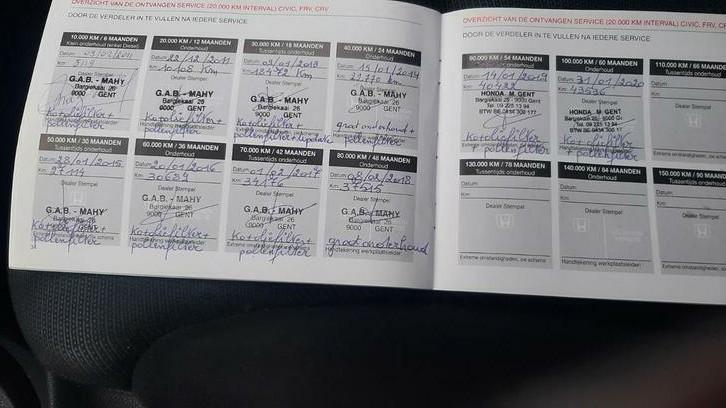 OVERZICHT VAN DE ONTVANGEN SERVICE (20.000 KM INTERVAL) CIVIC, FRV, CRV
DOOR DE VERDELER IN TE VULLEN NA IEDERE SERVICE
10.000 KM / 6 MAANDEN
Klein onderhoud (enkel Diesel)
Datum:
Km:
Dealer Stempel
G.A.B. - MAHY
Bargiekaai 26
9000 GENT
Ko+oliefilter+
pollenfilter
20.000 KM / 12 MAANDEN
Onderhoud
Datum: 22/12/2011
Km: 10408 Km
Dealer Stempel
G.A.B. - MAHY
Bargiekaai 26
9000 GENT
Ko+oliefilter+
pollenfilter
30.000 KM / 18 MAANDEN
Tussentijds onderhoud
Km: 18472 Km
Dealer Stempel
G.A.B. - MAHY
Bargiekaai 26
9000 GENT
Ko+oliefilter+
40.000 KM / 24 MAANDEN
Onderhoud
Datum: 15/01/2014
Km: 22770 km
Dealer Stempel
G.A.B. - MAHY
Bargiekaai 26
9000 GENT
groot onderhoud +
pollenfilter
50.000 KM / 30 MAANDEN
Tussentijds onderhoud
Datum: 28/01/2015
Km: 27114
Dealer Stempel
G.A.B. - MAHY
Bargiekaai 26
9000 GENT
Ko+oliefilter+
pollenfilter
60.000 KM / 36 MAANDEN
Onderhoud
Datum: 20/01/2016
Km: 30639
Dealer Stempel
G.A.B. - MAHY
Bargiekaai 26
9000 GENT
Ko+oliefilter+
pollenfilter
70.000 KM / 42 MAANDEN
Tussentijds onderhoud
Datum: 01/02/2017
Km: 34176
Dealer Stempel
G.A.B. - MAHY
Bargiekaai 26
9000 GENT
Ko+oliefilter+
pollenfilter
80.000 KM / 48 MAANDEN
Onderhoud
Datum: 08/02/2018
Km: 37515
Dealer Stempel
G.A.B. - MAHY
Bargiekaai 26
9000 GENT
groot onderhoud
Handtekening werkplaatsleider
OVERZICHT VAN DE ONTVANGEN SERVICE (20.000 KM INTERVAL) CIVIC, FRV, CR
DOOR DE VERDELER IN TE VULLEN NA IEDERE SERVICE
90.000 KM / 54 MAANDEN
Tussentijds onderhoud
Datum: 14/01/2019
Km: 40482
HONDA M. GENT
Bargiekaai 25 - 9000 Gent
Tel. 09 225 13 94
Ko+oliefilter
pollenfilter
100.000 KM / 60 MAANDEN
Onderhoud
Datum: 31/01/2020
Km: 43596
Dealer Stempel
HONDA M. GENT
Tel. 09 225 13 94
Ko+oliefilter
+ pollenfilter
110.000 KM / 66 MAANDEN
Tussentijds onderhoud
Datum:
Km:
Dealer Stempel
130.000 KM / 78 MAANDEN
Tussentijds onderhoud
Datum:
Km:
Dealer Stempel
140.000 KM / 84 MAANDEN
Onderhoud
Datum:
Km:
Dealer Stempel
Handtekening werkplaatsleider
150.000 KM / 90 MAANDEN
Tussentijds onderhoud
Datum:
Km:
Dealer Stempel